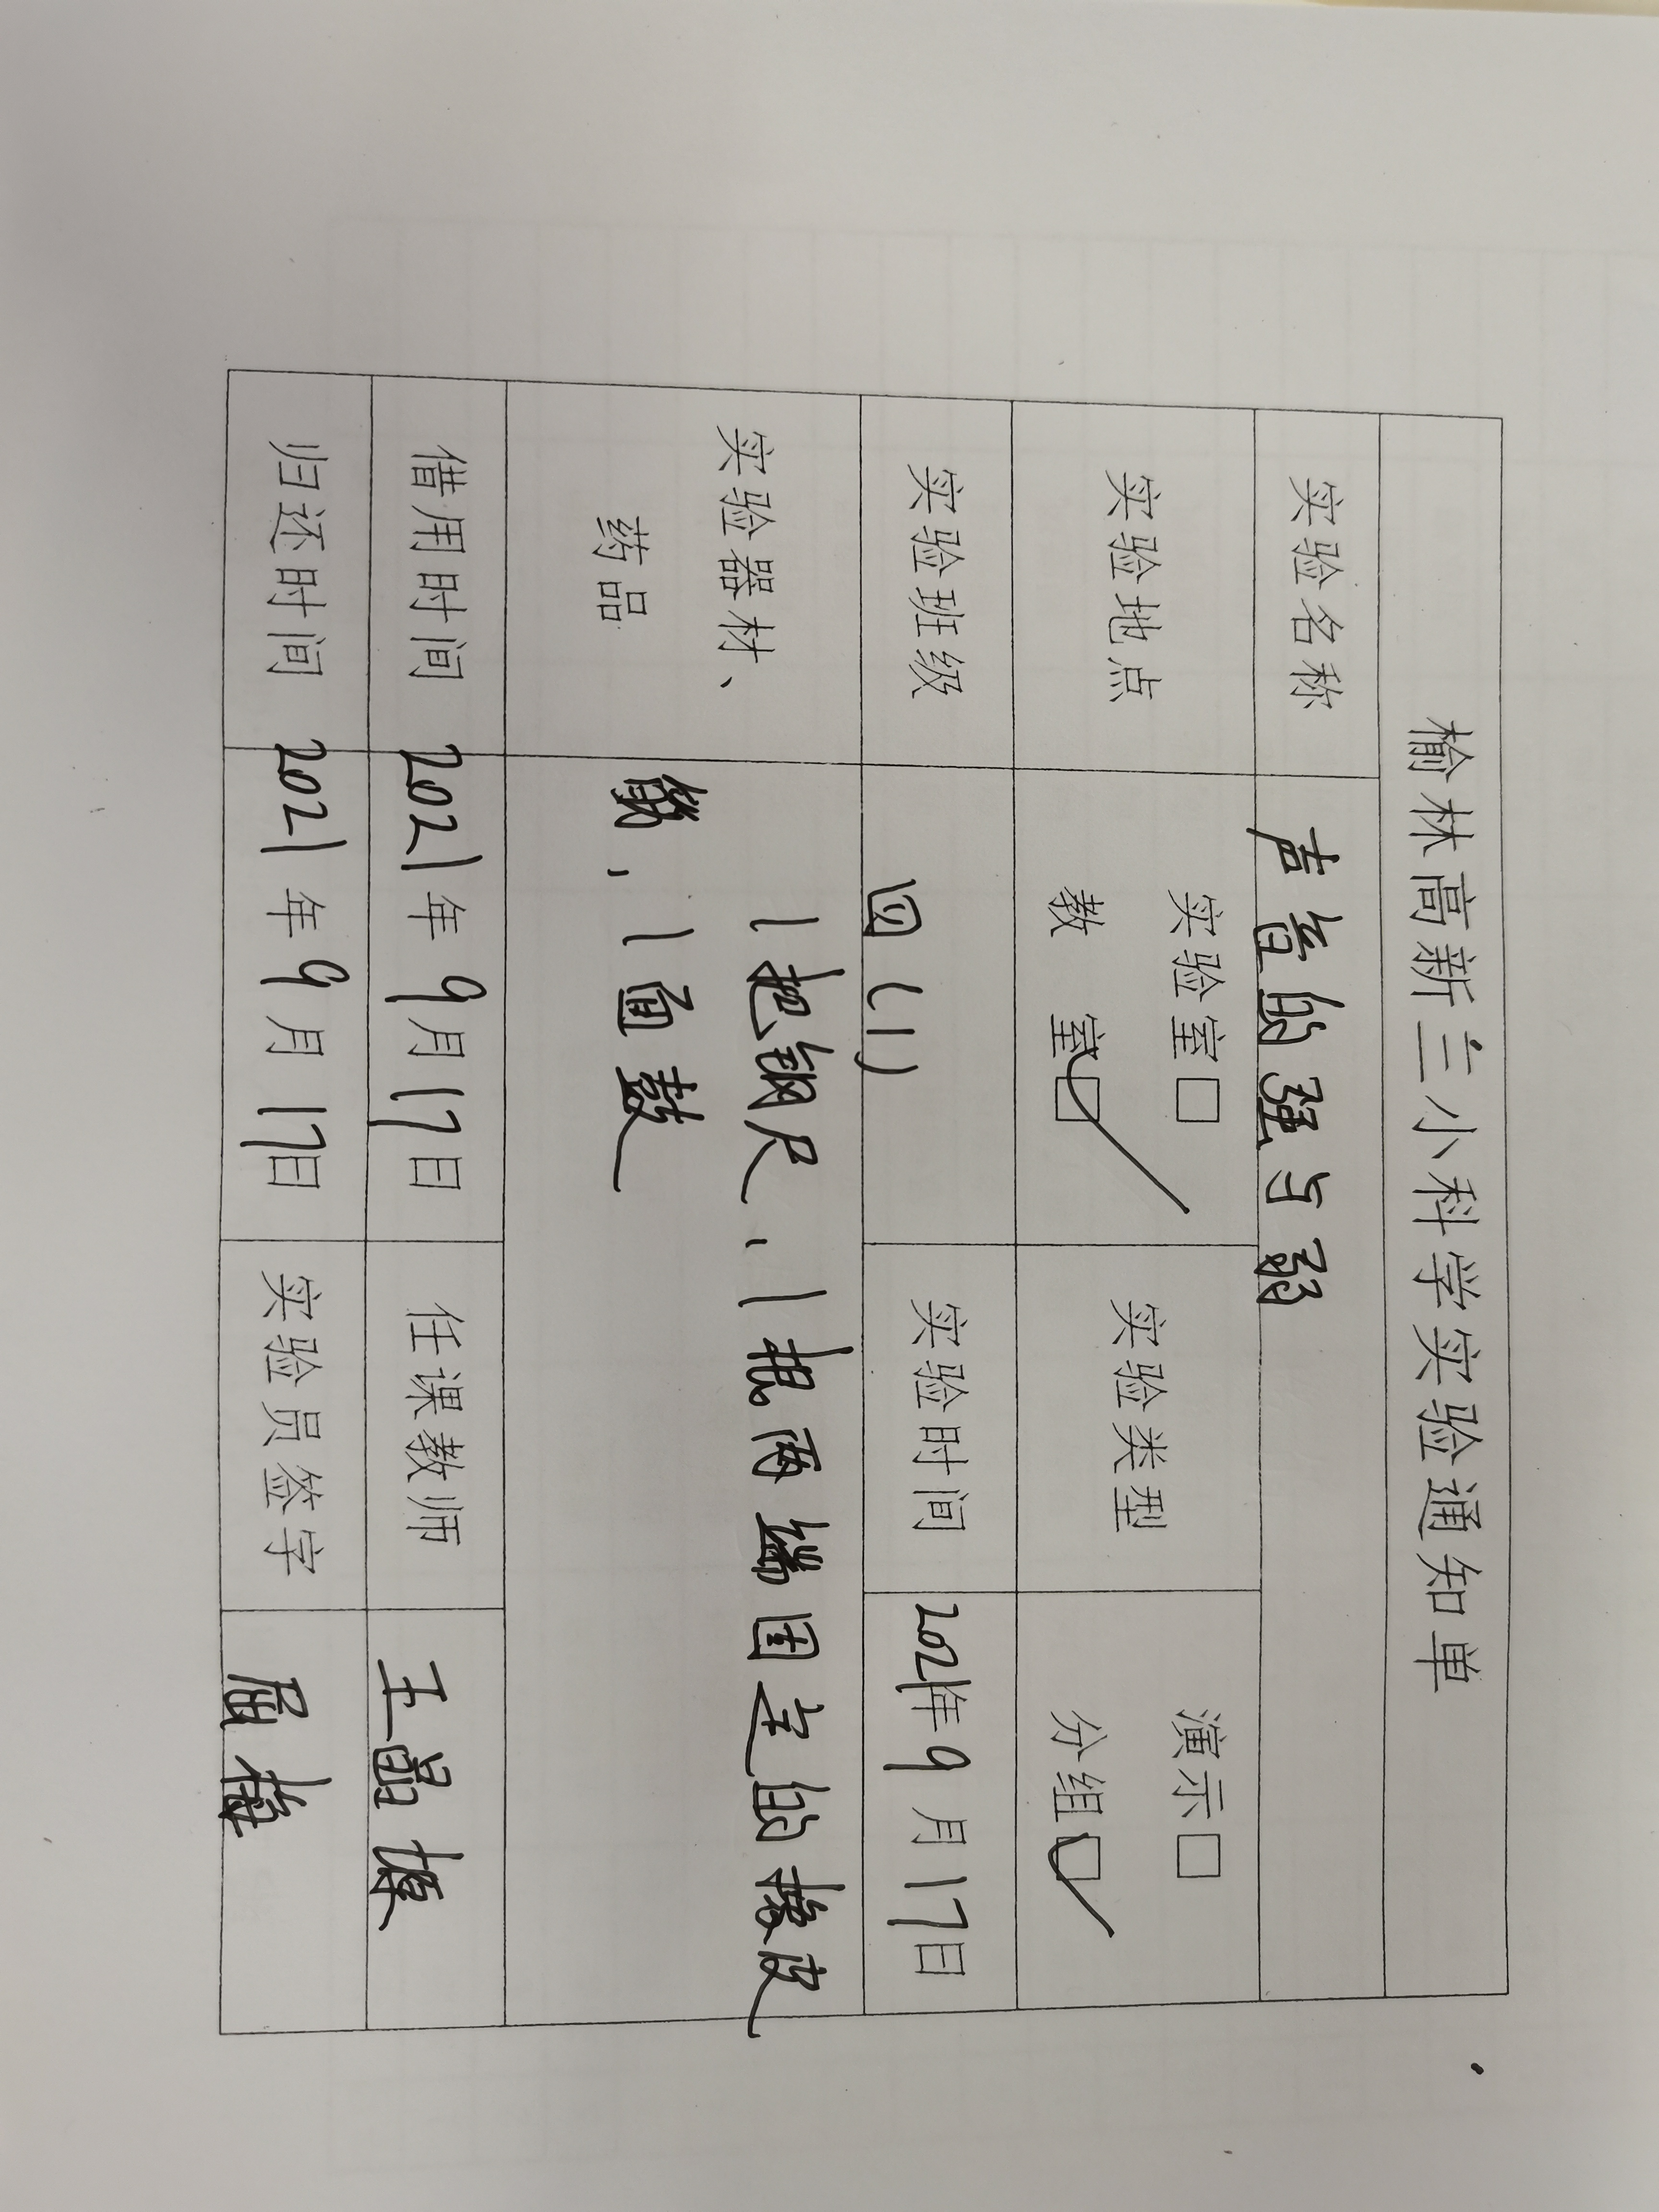 榆林高新三小科学实验通知单
实验名称 声音的强与弱
实验地点 实验室□ 教 室☑ 实验类型 演示□ 分组☑
实验班级 四(1) 实验时间 2021年9月17日
实验器材、药品 1把钢尺、1根两端固定的橡皮
筋、1面鼓
借用时间 2021年9月17日 任课教师 王晶
归还时间 2021年9月17日 实验员签字 屈梅